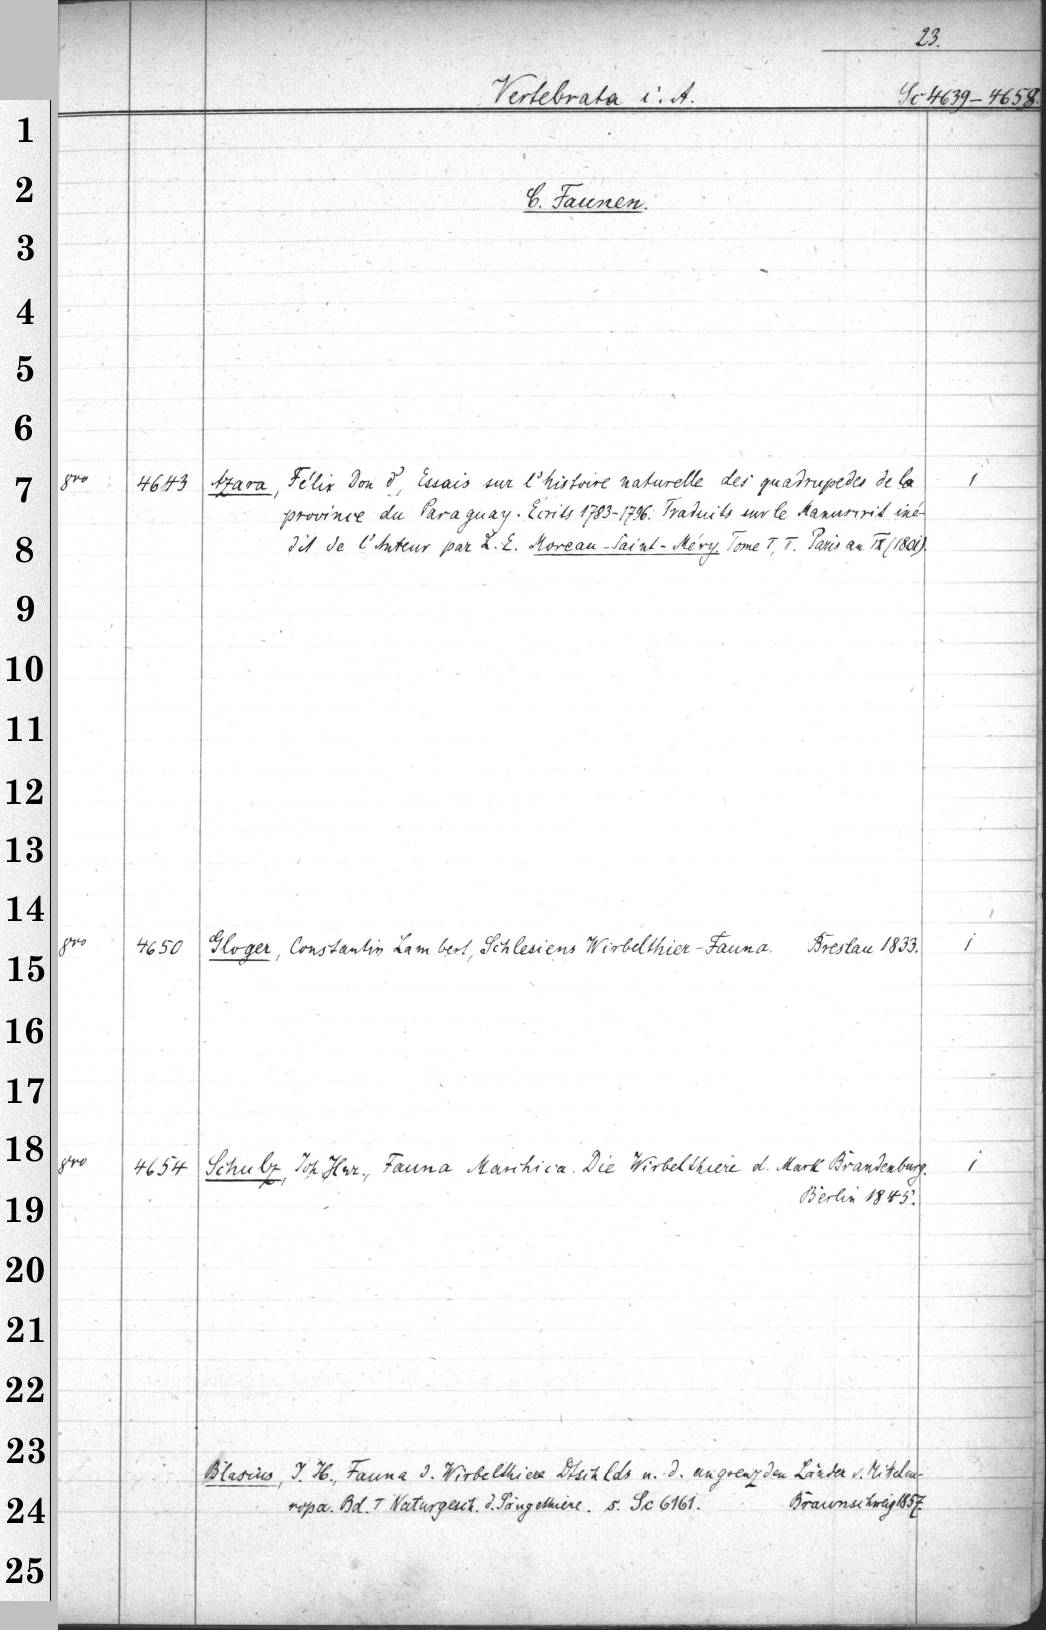 23.
Vertebrata i. A. Sc 4639-4658.
1
2
C. Faunen.
3
4
5
6
7
8vo 4643 Azara, Félix Don d', Essais sur l'histoire naturelle des quadrupedes de la 1
province du Paraguay. Ecrits 1783-1796. Traduits sur le Manuscrit iné-
8
dit de l'Auteur par L. E. Moreau-Saint-Méry Tome I, I. Paris an IX (1801).
9
10
11
12
13
14
8vo 4650 Gloger, Constantin Lambert, Schlesiens Wirbelthier-Fauna. Breslau 1833. 1
15
16
17
18
8vo 4654 Schulz, Joh. Hnr., Fauna Marchica. Die Wirbelthiere d. Mark Brandenburg. 1
Berlin 1845.
19
20
21
22
23
Blasius, J. H., Fauna d. Wirbelthiere Dtschlds u. d. angrenzden Länder v. Miteleu-
ropa. Bd. I Naturgesch. d. Säugethiere. s. Sc 6161. Braunschweig 1857.
24
25